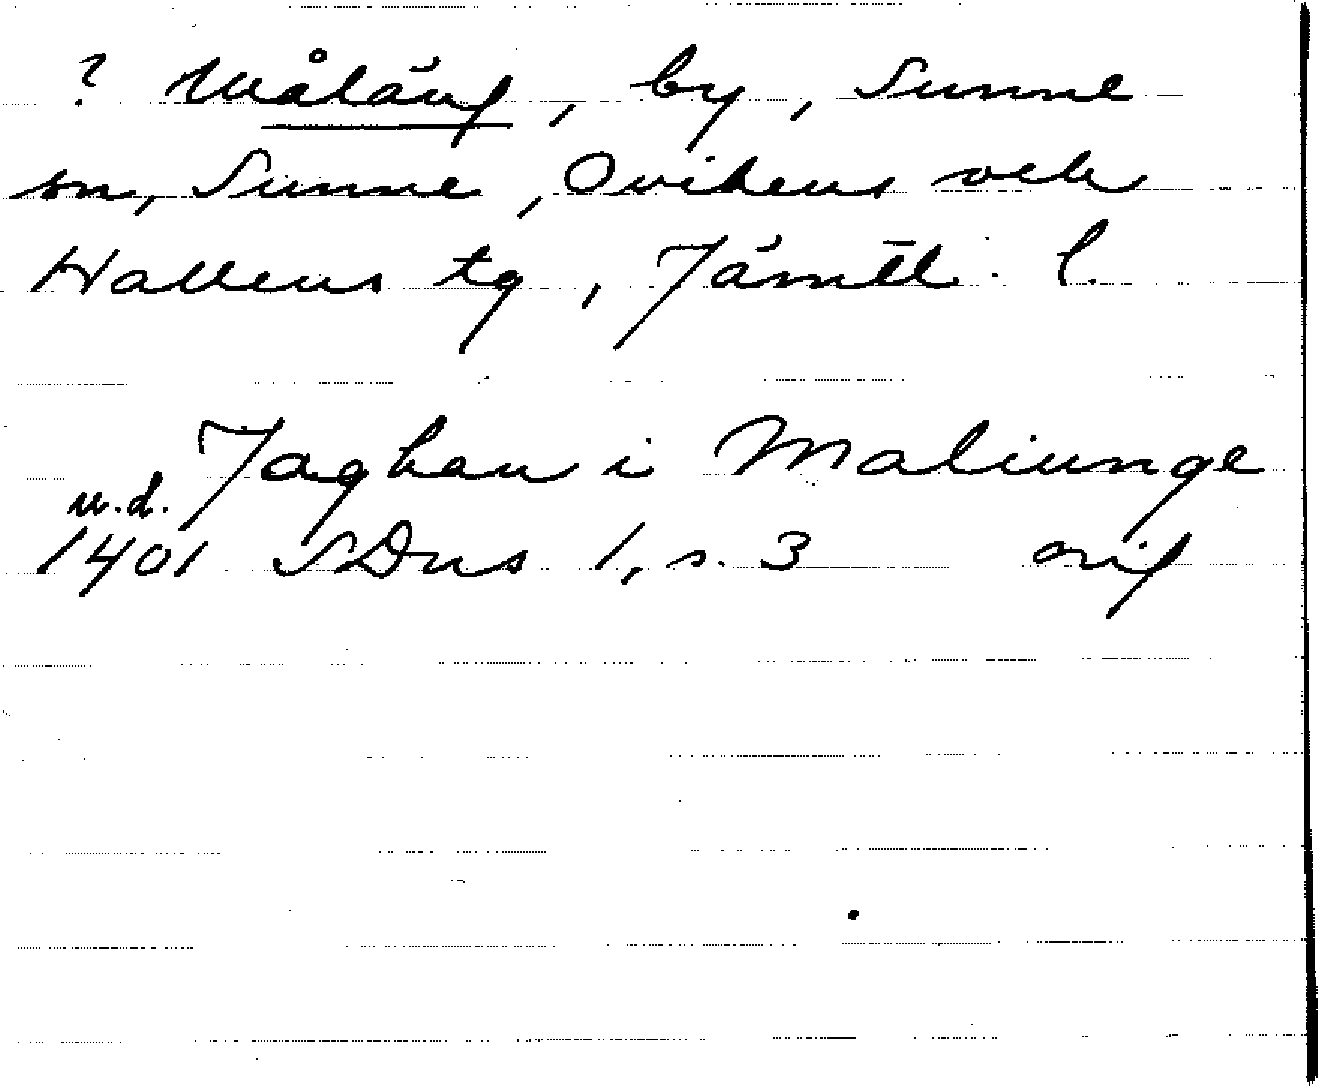 ? Måläng, by, Sunne
sn, Sunne, Ovikens och
Hallens tg, Jämtl. l.
Jaghan i Maliunge
u.d.
1401 SDns 1, s. 3 orig